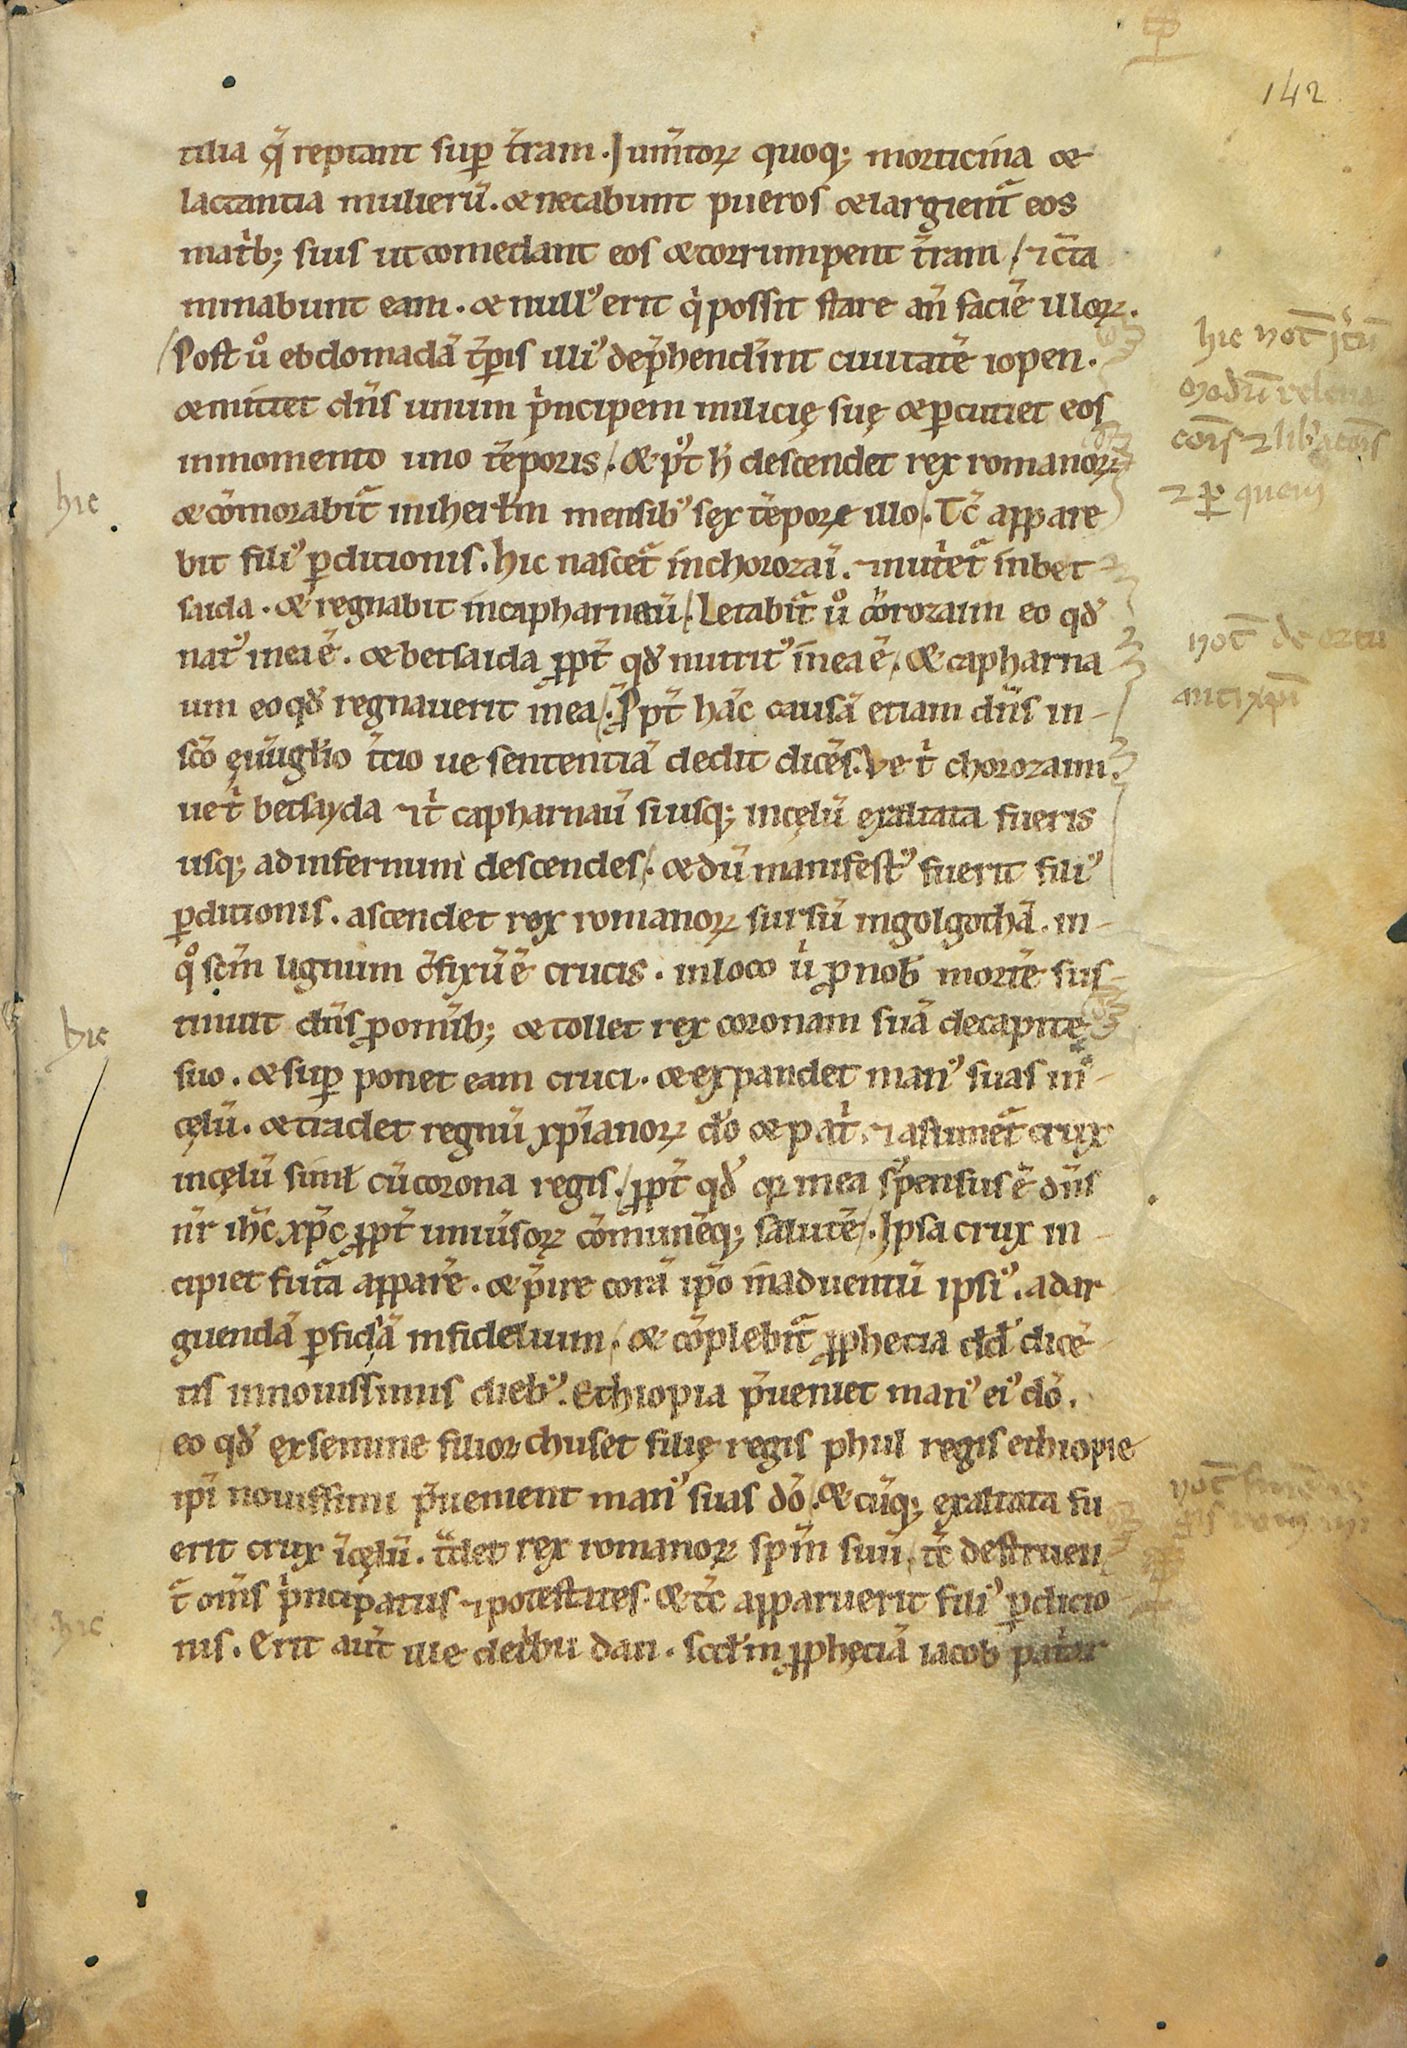 142
tilia q̃ reptant sup̱ t̃ram. Jum̃toꝝ quoq; morticina &
lactantia mulierũ. & necabunt pueros & largient᷑ eos
mat̃b; suis ut comedant eos & corrumpent t̃ram / ⁊ c̃ta
minabunt eam. & null᷒ erit q̇ possit stare añ faciẽ illoꝝ.
Post ů ebdomadã t̃pis illi᷒ dep̃hender̃t ciuitatẽ iopen.
& mittet dñs unum p̃ncipem milicię suę & ꝑcutiet eos
in momento uno tẽporis. & p᷒t h̃ descendet rex romanoꝝ
& cõmorabit᷑ in iherł̃m mensib᷒ sex tẽpore illo. Tc̃ appare
bit fili᷒ ꝑditionis. hic nascet᷑ in chorozaĩ. ⁊ nut̃et᷑ in bet
saida. & regnabit in capharnaũ. Letabit᷑ ů c̃orozaim eo qđ
nat᷒ in ea ẽ. & betsaida ꝓpt̃ qđ nutrit᷒ in ea ẽ. & capharna
um eo qđ regnauerit in ea. Ꝓpt̃ hãc causã etiam dñs in
sc̃o ęuãg̃lio t̃cio ue sententiã dedit dicẽs. Ve t̃ chorozaim.
ue t̃ betsayda ⁊ t̃ capharnaũ si usq; in cęlũ exaltata fueris
usq; ad infernum descendes. & dũ manifest᷒ fuerit fili᷒
ꝑditionis. ascendet rex romanoꝝ sursũ in golgothã. in
q̊ sc̃m lignum c̃fixũ ẽ crucis. in loco ů ꝓ nob̃ mortẽ sus
tinuit dñs ꝓ om̃ib; & tollet rex coronam suã de capite
suo. & sup̱ ponet eam cruci. & expandet man᷒ suas in
cęlũ. & tradet regnũ xp̃ianoꝝ d̃o & pat̃ ⁊ assumet᷑ crux
in cęlũ simł cũ corona regis. ꝓpt̃ qđ qꝛ in ea s᷒pensus ẽ dñs
ñr ih̃c xp̃c ꝓpt̃ uniũsoꝝ cõmunẽq; salutẽ. Ipsa crux in
cipiet fut᷑a apparẽ. & p̃ire corã ip̃o in aduentũ ipsi᷒. ad ar
guendã ꝑfidiã infidelium. & cõplebit᷑ ꝓphecia dđ dicẽ
tis in nouissimis dieb᷒. Ethiopia p̃ueniet man᷒ ei᷒ dõ.
eo qđ ex semine filioꝝ chuset filię regis phul regis ethiopie
ip̃i nouissimi p̃uenient man᷒ suas dõ. & cũq; exaltata fu
erit crux ĩ cęlũ. t᷑det rex romanoꝝ sp̃m suũ. tc̃ destruen
t᷑ om̃s p̃ncipatus ⁊ potestates. & tc̃ apparuerit fili᷒ ꝑdicio
nis. Erit aut̃ ille de tbu dan. scđm ꝓphęciã iacob pat̃ar
hic
hic
hic
hic not̃
⁊ ꝑ quem
not̃ de ortu
antixp̃i